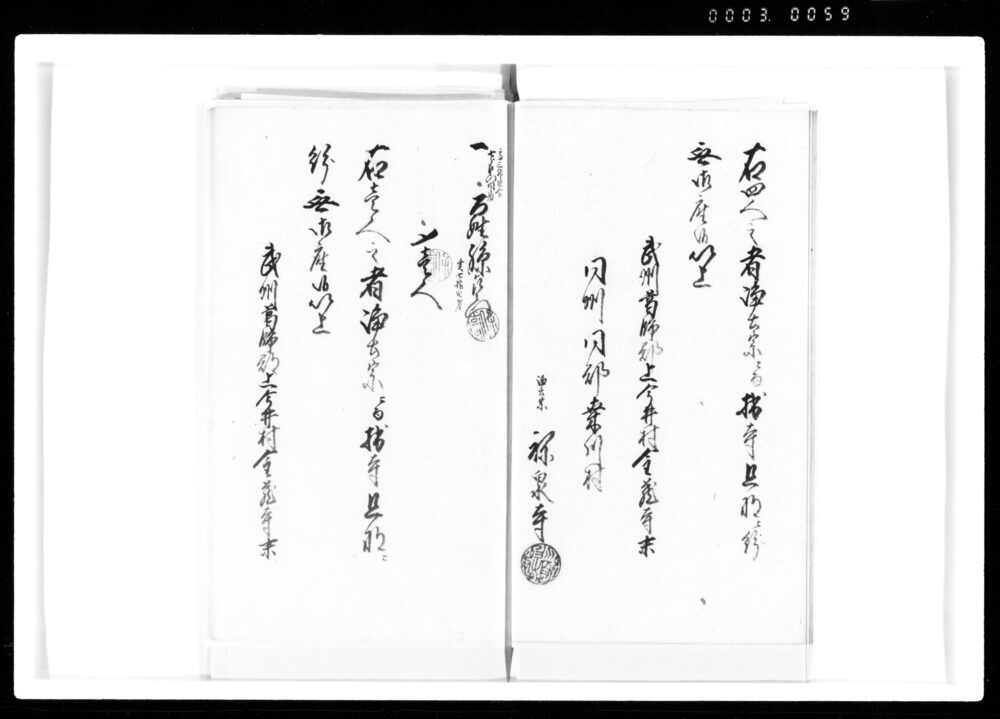 0003 0059
右四人之者浄土宗ニ而拙寺旦那ニ紛
無御座候以上
武州葛飾郡上今井村金蔵寺末
同州同郡桑川村
浄土宗
泉寺
一
壱人
右壱人之者浄土宗ニ而拙寺旦那ニ
紛無御座候以上
武州葛飾郡上今井村金蔵寺末